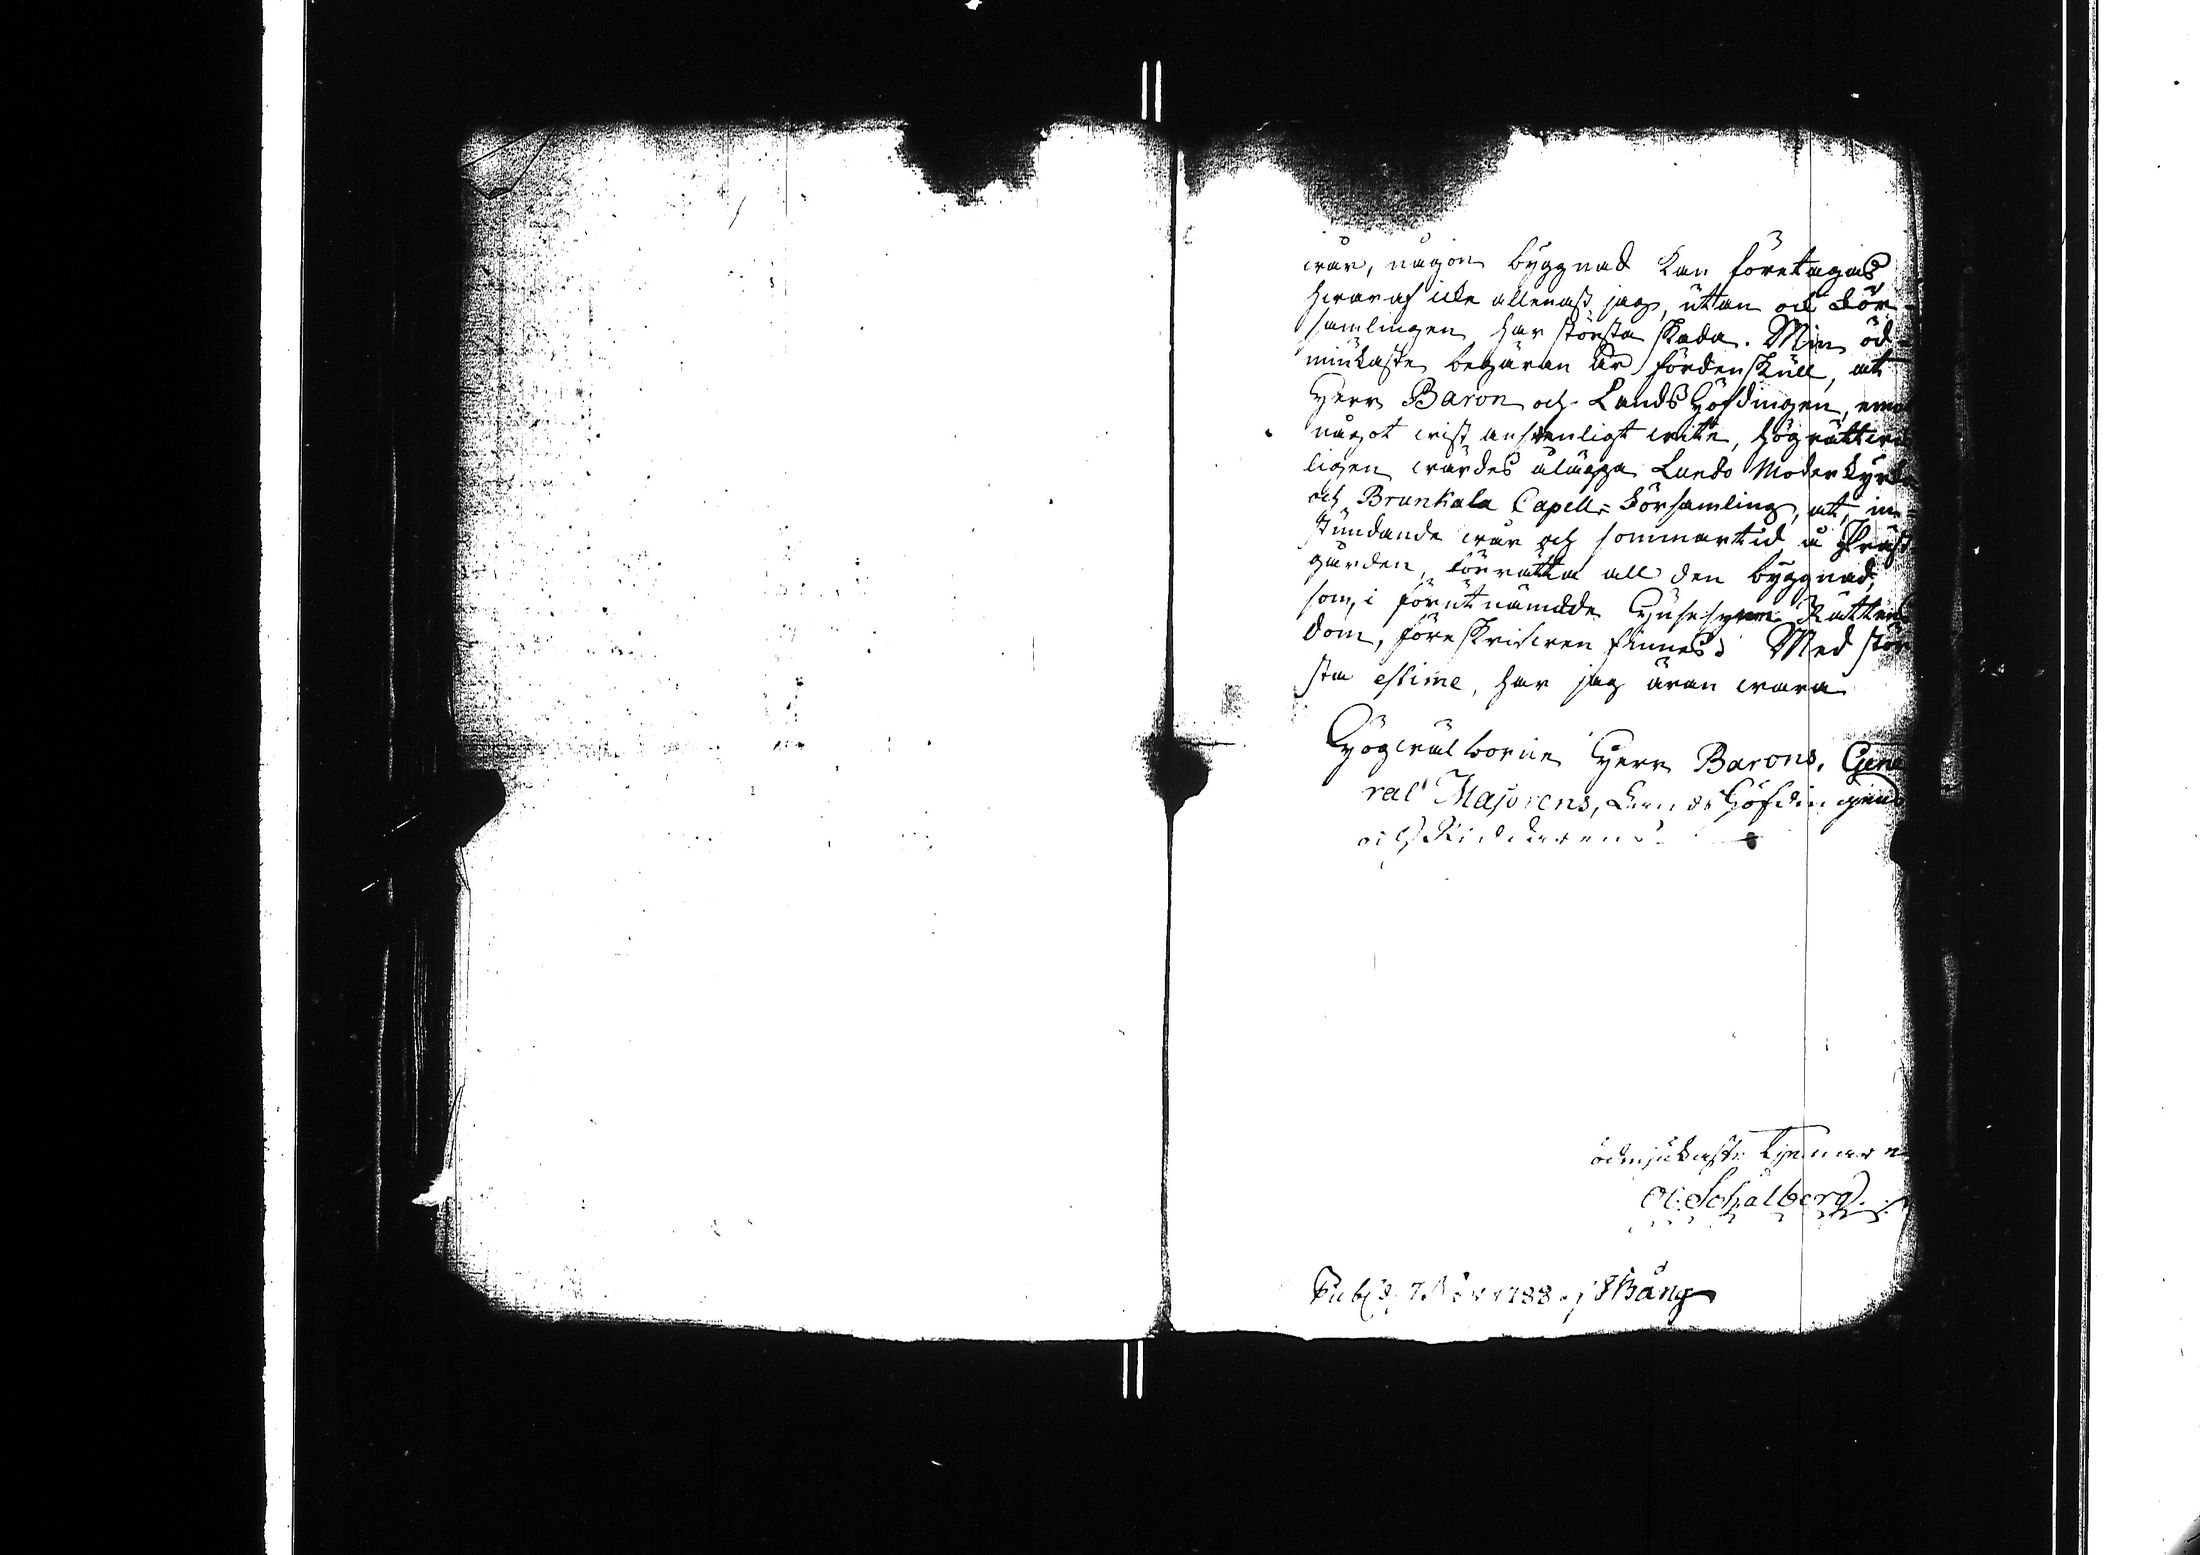 wår, någon byggnad kan företagas
hwaraf icke allenast jag, utan ock För-
samlingen har största skada. Min öd-
miukaste begäran är fördenskull, at
Herr Baron och Lands Höfdingen, emot
något wist ansenligt wite, högrättwis
ligen wärdes ålägga Lundo Moderkyrko
och Brunkala Capell-Församling, at, in-
stundande wår och sommartid å Präst
gården, förrätta all den byggnad,
som, i förutnämdde Husesyns Rättens
dom, föreskrifwen finnes. Med stör
sta estime, har jag äran wara
Högwälborne Herr Barons, Gene
ral Majorens, Lands Höfdingens
och Riddarens
ödmjukaste tjenare
Ol. Schalberg.
7 Nov 1788